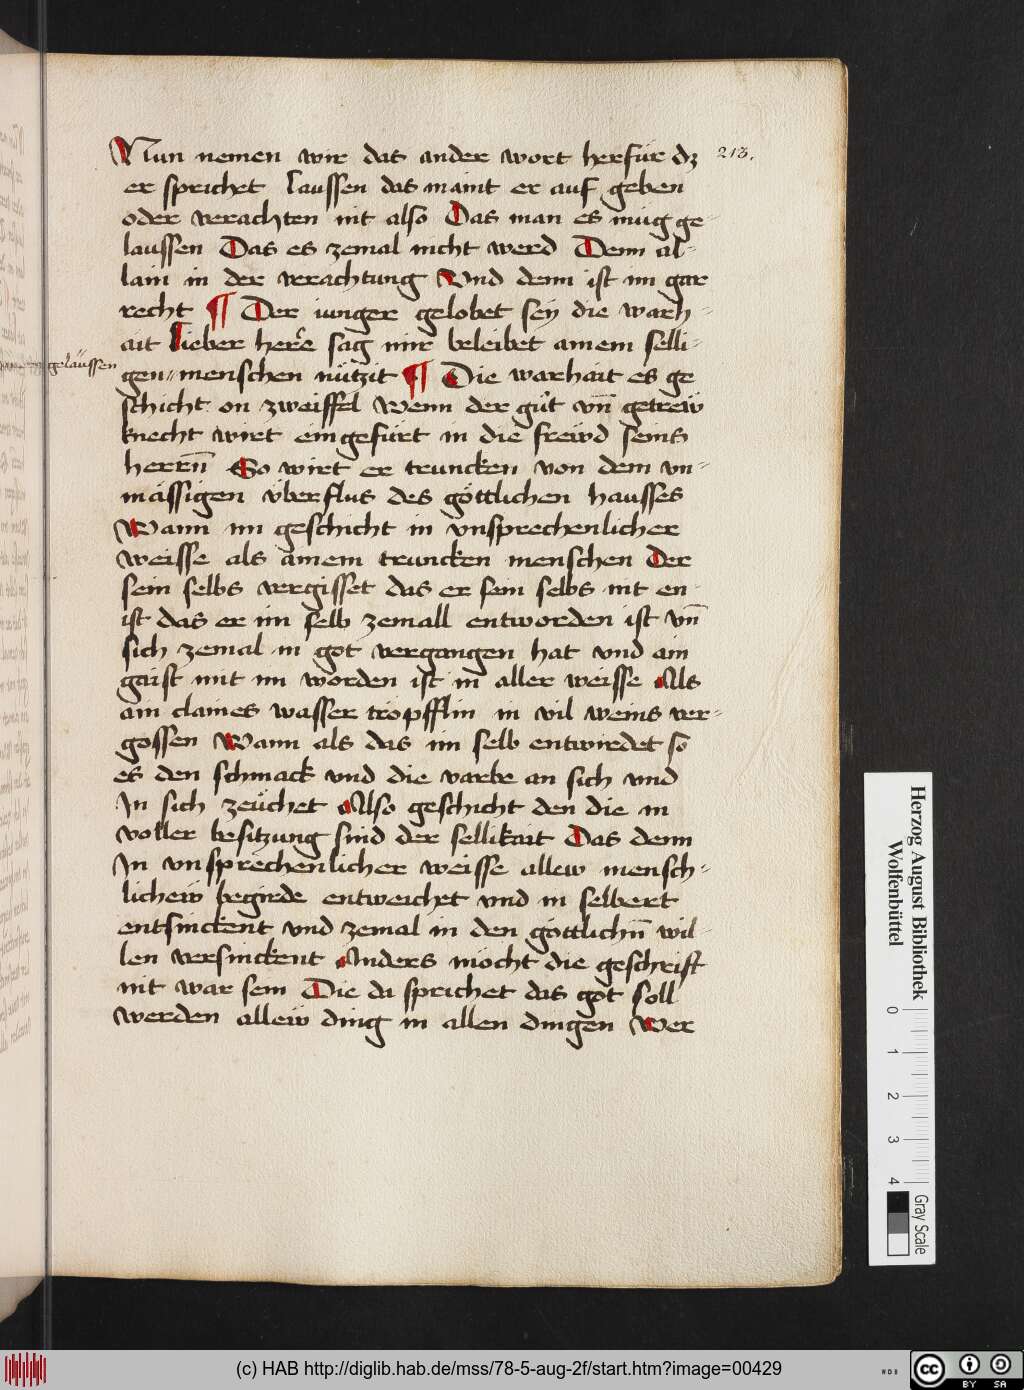 Nun nemen wir das ander wort herfür dz
213.
er sprichet laussen das maint er auf geben
oder verachten nit also Das man es müg ge-
laussen Das es zemal nicht werd Denn al-
lain in der verachtung Vnd denn ist im gar
recht ¶ Der iunger gelobet sey die warh-
ait Lieber herre sag mir beleibet ainem selli-
geläussen
gen menschen nützit ¶ Die warhait es ge
schicht on zweiffel Wenn der gůt vn̄ getrew
knecht wirt eingefürt in die frewd seins
herrn̄ So wirt er truncken von dem vn-
mässigen überflus des göttlichen hausses
Wann im geschicht in vnsprechenlicher
weisse als ainem truncken menschen Der
sein selbs vergisset das er sein selbs nit en-
ist das er im selb zemall entworden ist vn̄
sich zemal in got vergangen hat vnd ain
gaist mit im worden ist in aller weisse Als
ain claines wasser tröpfflin in vil weins ver-
gossen Wann als das im selb entwirdet so
es den schmack vnd die varbe an sich vnd
In sich zeüchet Also geschicht den die in
voller besitzung sind der sellikait Das denn
In vnsprechenlicher weisse allew mensch-
lichew begirde entweichet vnd in selbert
entsinckent vnd zemal in den göttlichn̄ wil-
len versinckent Anders möcht die geschrift
nit war sein Die da sprichet das got soll
werden allew ding in allen dingen Wer
Herzog August Bibliothek
Wolfenbüttel
0 1 2 3 4
Gray Scale
(c) HAB http://diglib.hab.de/mss/78-5-aug-2f/start.htm?image=00429
cc BY SA